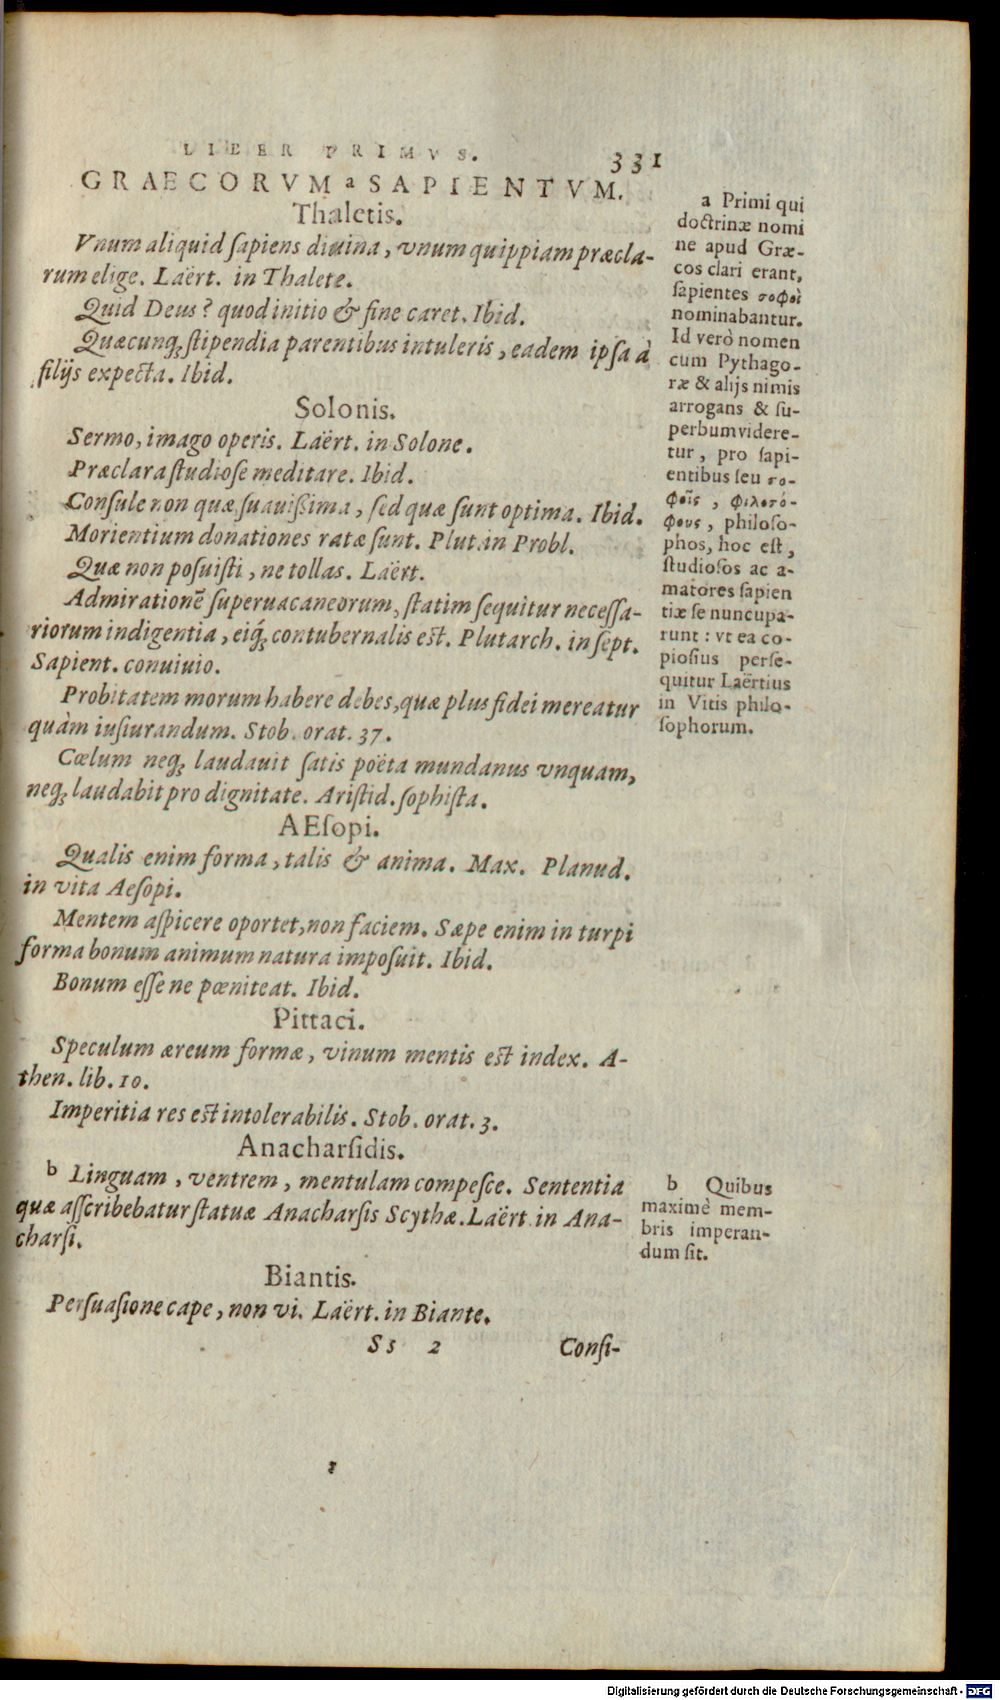 LIBER PRIMVS. 331
GRAECORVM a SAPIENTVM.
Thaletis.
Vnum aliquid ſapiens diuina, vnum quippiam præcla-
rum elige. Laërt. in Thalete.
Quid Deus? quod initio & fine caret. Ibid.
Quæcunq; ſtipendia parentibus intuleris, eadem ipſa à
filijs expecta. Ibid.
Solonis.
Sermo, imago operis. Laërt. in Solone.
Præclara ſtudioſe meditare. Ibid.
Conſule non quæ ſuauißima, ſed quæ ſunt optima. Ibid.
Morientium donationes ratæ ſunt. Plut. in Probl.
Quæ non poſuiſti, ne tollas. Laërt.
Admirationē ſuperuacaneorum, ſtatim ſequitur neceſſa-
riorum indigentia, eiq́; contubernalis eſt. Plutarch. in ſept.
Sapient. conuiuio.
Probitatem morum habere debes, quæ plus fidei mereatur
quàm iuſiurandum. Stob. orat. 37.
Cœlum neq; laudauit ſatis poëta mundanus vnquam,
neq; laudabit pro dignitate. Ariſtid. ſophiſta.
AEſopi.
Qualis enim forma, talis & anima. Max. Planud.
in vita Aeſopi.
Mentem aſpicere oportet, non faciem. Sæpe enim in turpi
forma bonum animum natura impoſuit. Ibid.
Bonum eſſe ne pœniteat. Ibid.
Pittaci.
Speculum æreum formæ, vinum mentis eſt index. A-
then. lib. 10.
Imperitia res eſt intolerabilis. Stob. orat. 3.
Anacharſidis.
b Linguam, ventrem, mentulam compeſce. Sententia
quæ aſſcribebatur ſtatuæ Anacharſis Scythæ. Laërt. in Ana-
charſi.
Biantis.
Perſuaſione cape, non vi. Laërt. in Biante.
Ss 2 Conſi-
a Primi qui
doctrinæ nomi
ne apud Græ-
cos clari erant,
ſapientes σοφοὶ
nominabantur.
Id verò nomen
cum Pythago-
ræ & alijs nimis
arrogans & ſu-
perbum videre-
tur, pro ſapi-
entibus ſeu σο-
φοῖς, φιλοσό-
φους, philoſo-
phos, hoc eſt,
ſtudioſos ac a-
matores ſapien
tiæ ſe nuncupa-
runt: vt ea co-
pioſius perſe-
quitur Laërtius
in Vitis philo-
ſophorum.
b Quibus
maximè mem-
bris imperan-
dum ſit.
Digitalisierung gefördert durch die Deutsche Forschungsgemeinschaft - DFG